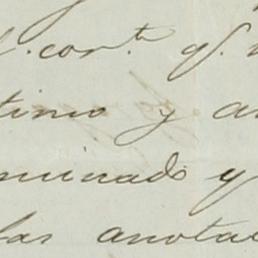 cor.te q.
timo y a
minado y
las anota